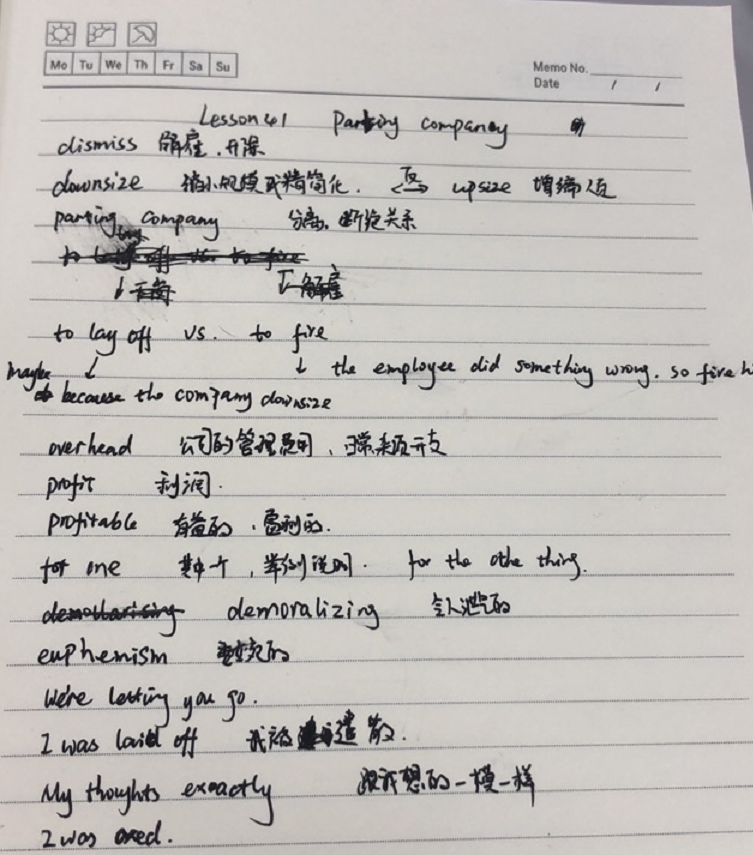 Mo Tu We Th Fr Sa Su
Memo No.
Date / /
Lesson 41 Parting company
dismiss 解雇,开除
downsize 缩小规模或精简化. 反 upsize 增
parting company 分离,断绝关系
解雇
to lay off vs. to fire
maybe ↓ ↓ the employee did something wrong. so fire
because the company downsize
overhead 公司的管理费用、日常开支
profit 利润.
profitable 有益的、盈利的.
for one 其中一个,举例说明. for the othe thing.
demoralizing 令人泄气的
euphemism 委婉的
We're letting you go.
I was laid off 我被遣散.
My thoughts exactly 跟我想的一模一样
I was axed.